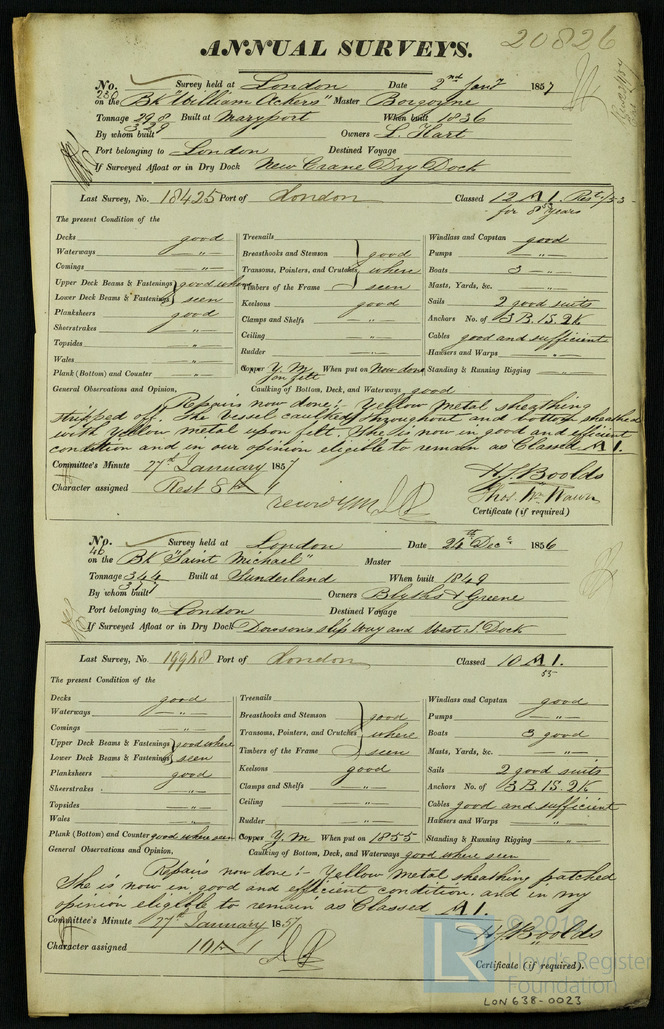 20826
ANNUAL SURVEYS.
No. 230 Survey held at London Date 2nd Jany 1857
on the Bk "William Ackers" Master Borgoyne
Tonnage 298 339 Built at Maryport When built 1836
By whom built Owners L Hart
Port belonging to London Destined Voyage
If Surveyed Afloat or in Dry Dock New Crane Dry Dock
Last Survey, No. 18425 Port of London Classed 12 A 1. Restd/53
for 8 years
The present Condition of the
Decks good Treenails Windlass and Capstan good
Waterways " Breasthooks and Stemson good Pumps "
Comings " Transoms, Pointers, and Crutches where Boats 3 "
Upper Deck Beams & Fastenings good where Timbers of the Frame seen Masts, Yards, &c. "
Lower Deck Beams & Fastenings seen Keelsons good Sails 2 good suits
Planksheers good Clamps and Shelfs " Anchors No. of 3 B. 1S. 2K
Sheerstrakes " Ceiling " Cables good and sufficient
Topsides " Rudder " Hawsers and Warps "
Wales "
Plank (Bottom) and Counter " Copper Y. M. on felt When put on Now done Standing & Running Rigging "
General Observations and Opinion, Caulking of Bottom, Deck, and Waterways good
Repairs now done:- Yellow Metal sheathing
stripped off. The Vessel caulked throughout and bottom sheathed
with Yellow metal upon felt. She is now in good and efficient
condition and in our opinion eligible to remain as Classed A 1.
Committee's Minute 27th January 1857
Character assigned Rest 8 A 1
H J Boolds
Certificate (if required)
No. 46 Survey held at London Date 24th Decr 1856
on the Bk "Saint Michael" Master
Tonnage 344 Built at Sunderland When built 1849
By whom built Owners Blyths & Greene
Port belonging to London Destined Voyage
If Surveyed Afloat or in Dry Dock Dowsons slip way and West I Dock
Last Survey, No. 19948 Port of London Classed 10 A 1.
55
The present Condition of the
Decks good Treenails Windlass and Capstan good
Waterways " Breasthooks and Stemson good Pumps "
Comings " Transoms, Pointers, and Crutches where Boats 3 good
Upper Deck Beams & Fastenings good where Timbers of the Frame seen Masts, Yards, &c. "
Lower Deck Beams & Fastenings seen Keelsons good Sails 2 good suits
Planksheers good Clamps and Shelfs " Anchors No. of 3 B. 1S. 2K
Sheerstrakes " Ceiling " Cables good and sufficient
Topsides " Rudder " Hawsers and Warps "
Wales "
Plank (Bottom) and Counter good where seen Copper Y. M When put on 1855 Standing & Running Rigging "
General Observations and Opinion, Caulking of Bottom, Deck, and Waterways good where seen
Repairs now done:- Yellow Metal sheathing patched
She is now in good and efficient condition. and in my
opinion eligible to remain as Classed A 1.
Committee's Minute 27th January 1857
Character assigned 10 A 1
H J Boolds
Certificate (if required).
© 2019
LR Lloyd's Register
Foundation
LON 638-0023